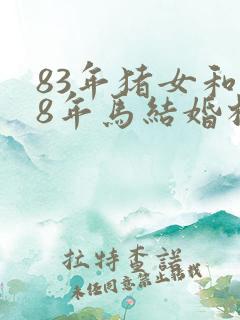 83年猪女和
8年马結婚
拉特查諾
未任同意禁止转载